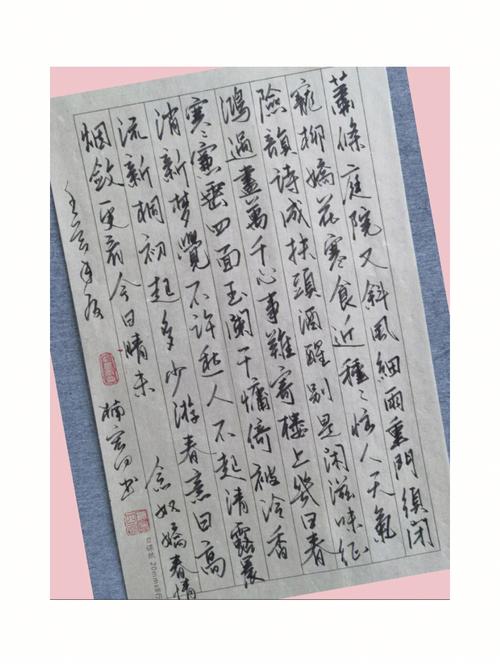 蕭條庭院又斜風細雨重門須閉
寵柳嬌花寒食近種々惱人天氣
險韻詩成扶頭酒醒別是閑滋味征
鴻過盡萬千心事難寄樓上幾日春
寒々簾垂四面玉闌干慵倚被冷香
消新夢覺不許愁人不起清露晨
流新桐初起多少游春意日高
烟斂更看今日晴未
念奴嬌春情